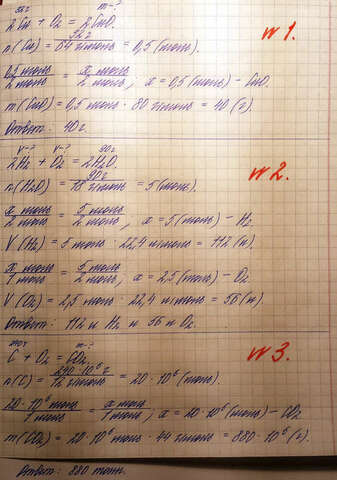 32г m-?
2Cu + O₂ = 2CuO.
n(Cu) = 32г / 64 г/моль = 0,5 (моль).
№1.
0,5 моль / 2 моль = x моль / 2 моль; x = 0,5 (моль) - CuO.
m(CuO) = 0,5 моль · 80 г/моль = 40 (г).
Ответ: 40г.
V-? V-? 90г
2H₂ + O₂ = 2H₂O.
n(H₂O) = 90г / 18 г/моль = 5 (моль).
№2.
x моль / 2 моль = 5 моль / 2 моль; x = 5 (моль) - H₂.
V(H₂) = 5 моль · 22,4 л/моль = 112 (л).
x моль / 1 моль = 5 моль / 2 моль; x = 2,5 (моль) - O₂.
V(O₂) = 2,5 моль · 22,4 л/моль = 56 (л).
Ответ: 112 л H₂ и 56 л O₂.
m-?
C + O₂ = CO₂.
№3.
n(C) = 240 · 10⁶ г / 12 г/моль = 20 · 10⁶ (моль).
20 · 10⁶ моль / 1 моль = x моль / 1 моль; x = 20 · 10⁶ (моль) - CO₂
m(CO₂) = 20 · 10⁶ моль · 44 г/моль = 880 · 10⁶ (г).
Ответ: 880 тонн.